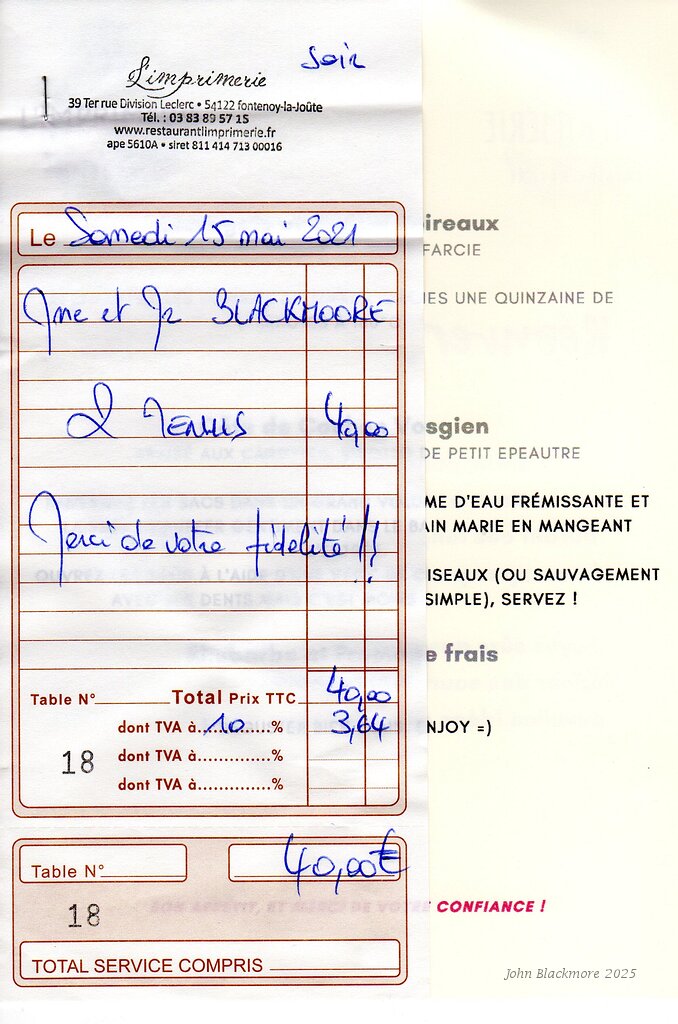 soir
L'imprimerie
39 Ter rue Division Leclerc • 54122 fontenoy-la-Joûte
Tél. : 03 83 89 57 15
www.restaurantlimprimerie.fr
ape 5610A • siret 811 414 713 00016
Le Samedi 15 mai 2021
Mme et Mr BLACKMOORE
2 MENUS 40,00
Merci de votre fidélité !!
Table N° Total Prix TTC 40,00
dont TVA à 10 % 3,64
dont TVA à..............%
18
dont TVA à..............%
40,00€
Table N°
18
TOTAL SERVICE COMPRIS
ireaux
FARCIE
ES UNE QUINZAINE DE
osgien
DE PETIT EPEAUTRE
ME D'EAU FRÉMISSANTE ET
BAIN MARIE EN MANGEANT
ISEAUX (OU SAUVAGEMENT
SIMPLE), SERVEZ !
e frais
NJOY =)
CONFIANCE !
John Blackmore 2025